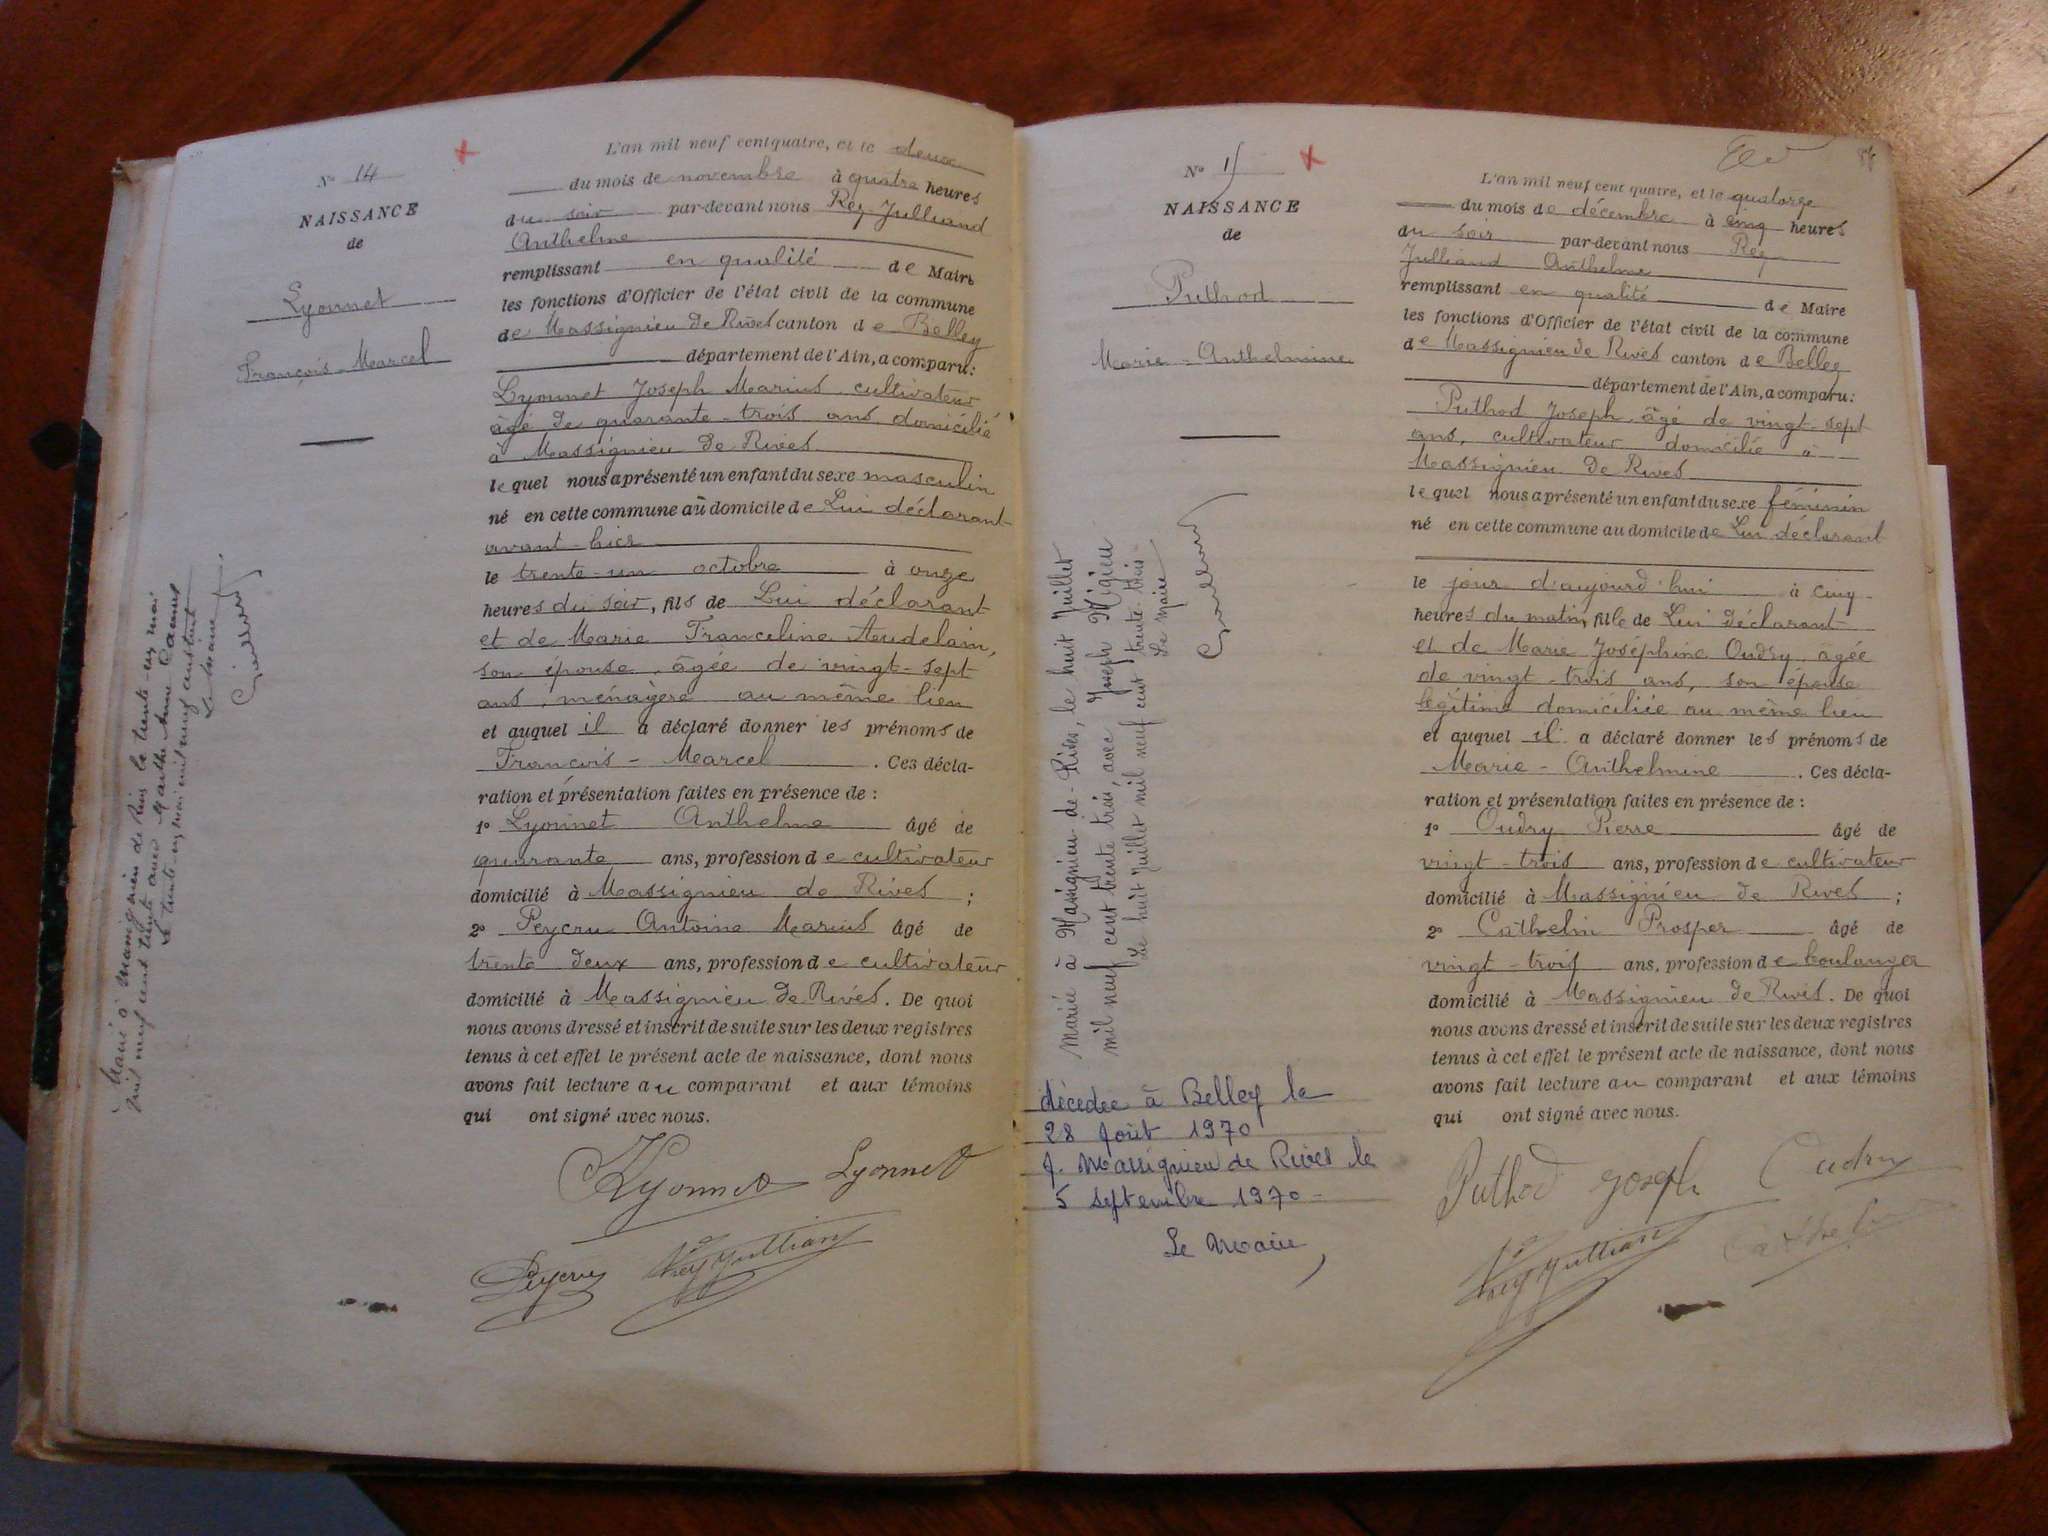 N° 14
NAISSANCE
de
Lyonnet
François-Marcel
L'an mil neuf cent quatre, et le deux
du mois de novembre à quatre heures
du soir par-devant nous Rey-Julliand
Anthelme
remplissant en qualité de Maire
les fonctions d'Officier de l'état civil de la commune
de Massignieu de Rives canton de Belley
département de l'Ain, a comparu:
Lyonnet Joseph Marius, cultivateur
âgé de quarante-trois ans, domicilié
à Massignieu de Rives
lequel nous a présenté un enfant du sexe masculin
né en cette commune au domicile de Lui déclarant
avant-hier
le trente-un octobre à onze
heures du soir, fils de Lui déclarant
et de Marie Franceline Audelain,
son épouse, âgée de vingt-sept
ans, ménagère au même lieu
et auquel il a déclaré donner les prénoms de
François-Marcel. Ces décla-
ration et présentation faites en présence de :
1° Lyonnet Anthelme âgé de
quarante ans, profession de cultivateur
domicilié à Massignieu de Rives ;
2° Peycru Antoine Marius âgé de
trente deux ans, profession de cultivateur
domicilié à Massignieu de Rives. De quoi
nous avons dressé et inscrit de suite sur les deux registres
tenus à cet effet le présent acte de naissance, dont nous
avons fait lecture au comparant et aux témoins
qui ont signé avec nous.
Lyonnet Lyonnet
Peycru Rey Jullian
Marié à Massignieu de Rives le trente-un mai
mil neuf cent trente avec Marthe Anne
Le trente-un mai mil neuf cent trente
Le maire
N° 15
NAISSANCE
de
Puthod
Marie-Anthelmine
L'an mil neuf cent quatre, et le quatorze
du mois de décembre à cinq heures
du soir par-devant nous Rey
Julliand Anthelme
remplissant en qualité de Maire
les fonctions d'Officier de l'état civil de la commune
de Massignieu de Rives canton de Belley
département de l'Ain, a comparu:
Puthod Joseph, âgé de vingt-sept
ans, cultivateur domicilié à
Massignieu de Rives
lequel nous a présenté un enfant du sexe féminin
né en cette commune au domicile de Lui déclarant
le jour d'aujourd'hui à cinq
heures du matin, fille de Lui déclarant
et de Marie Joséphine Oudry, âgée
de vingt-trois ans, son épouse
légitime domiciliée au même lieu
et auquel il a déclaré donner les prénoms de
Marie-Anthelmine. Ces décla-
ration et présentation faites en présence de :
1° Oudry Pierre âgé de
vingt-trois ans, profession de cultivateur
domicilié à Massignieu de Rives ;
2° Cathelin Prosper âgé de
vingt-trois ans, profession de boulanger
domicilié à Massignieu de Rives. De quoi
nous avons dressé et inscrit de suite sur les deux registres
tenus à cet effet le présent acte de naissance, dont nous
avons fait lecture au comparant et aux témoins
qui ont signé avec nous.
Puthod Joseph Oudry
Rey Jullian Cathelin
Mariée à Massignieu-de-Rives, le huit Juillet
mil neuf cent trente trois, avec Joseph Migieu
Le huit juillet mil neuf cent trente trois
Le Maire
décédée à Belley le
28 Août 1970
A. Massignieu de Rives le
5 septembre 1970
Le Maire,